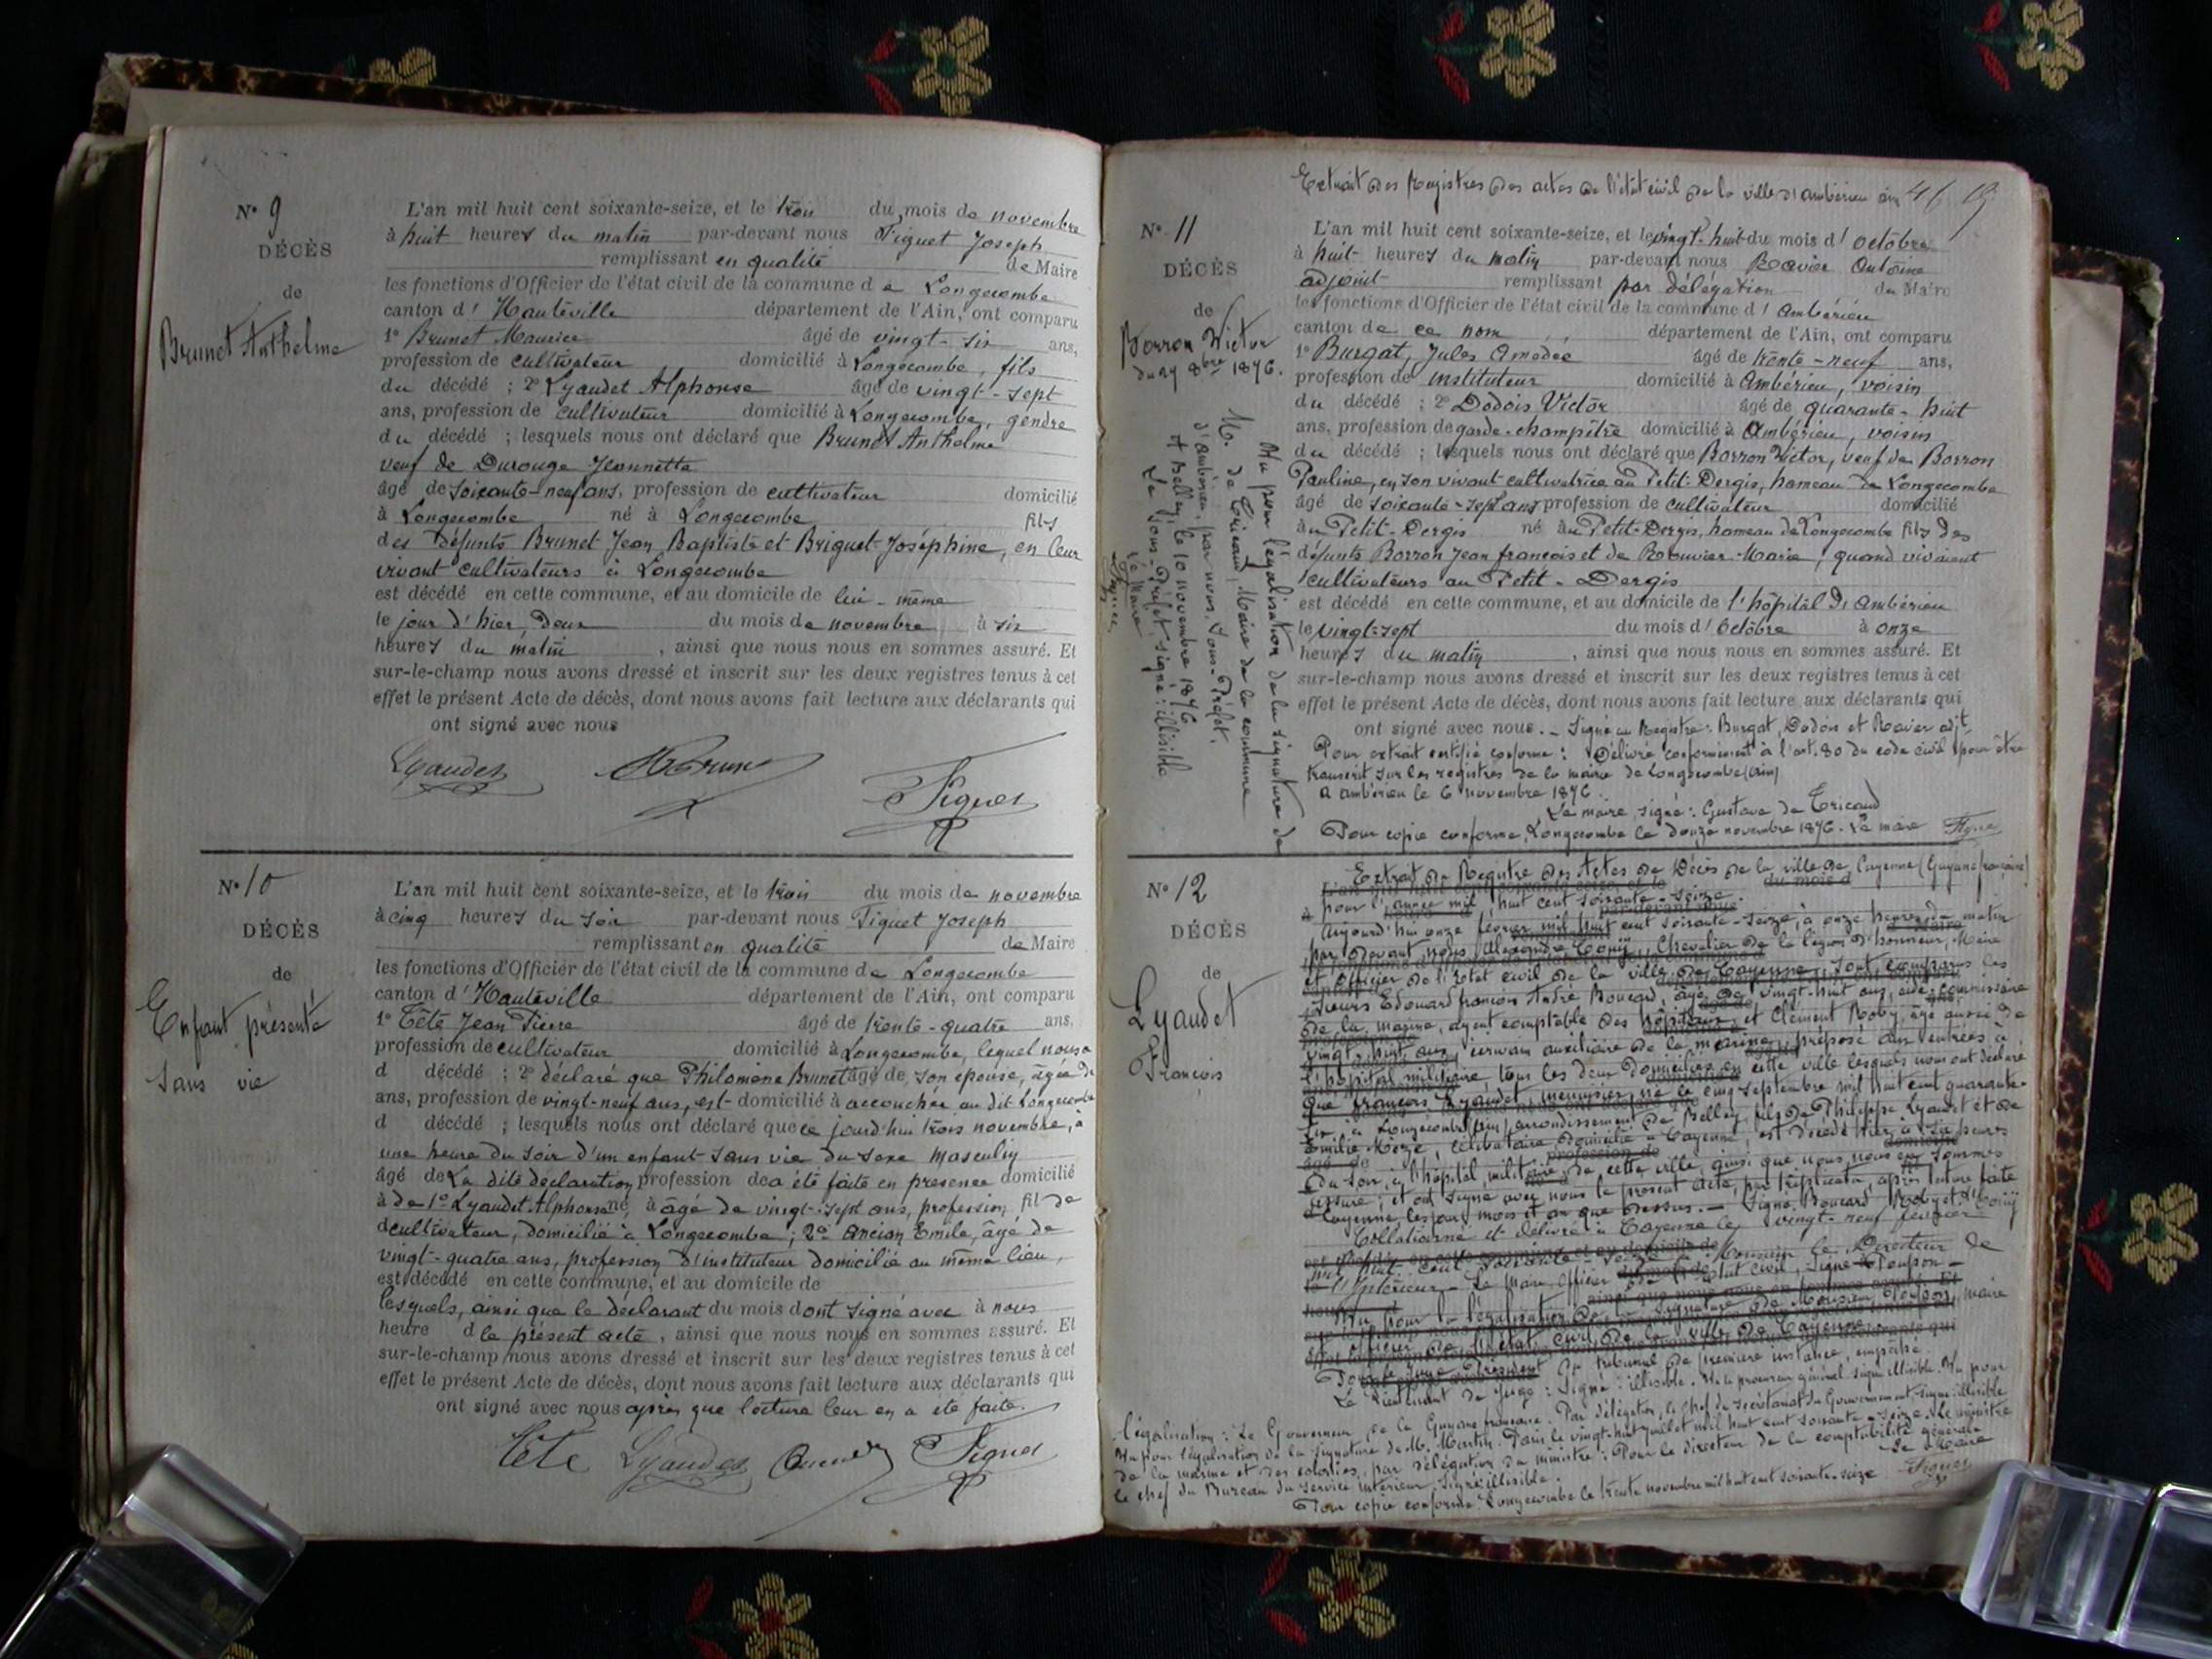 N° 9
DÉCÈS
de
Brunet Anthelme
L'an mil huit cent soixante-seize, et le trois du mois de novembre
à huit heures du matin par-devant nous Figuet Joseph
remplissant en qualité de Maire
les fonctions d'Officier de l'état civil de la commune de Longecombe
canton d'Hauteville département de l'Ain, ont comparu
1° Brunet Maurice âgé de vingt-six ans,
profession de cultivateur domicilié à Longecombe, fils
du décédé ; 2° Lyaudet Alphonse âgé de vingt-sept
ans, profession de cultivateur domicilié à Longecombe, gendre
du décédé ; lesquels nous ont déclaré que Brunet Anthelme
veuf de Durouge Jeannette
âgé de soixante-neuf ans, profession de cultivateur domicilié
à Longecombe né à Longecombe fils
des défunts Brunet Jean Baptiste et Briguet Joséphine, en leur
vivant cultivateurs à Longecombe
est décédé en cette commune, et au domicile de lui-même
le jour d'hier, deux du mois de novembre à six
heures du matin, ainsi que nous nous en sommes assuré. Et
sur-le-champ nous avons dressé et inscrit sur les deux registres tenus à cet
effet le présent Acte de décès, dont nous avons fait lecture aux déclarants qui
ont signé avec nous
Lyaudet Figuet
N° 10
DÉCÈS
de
Enfant présenté
sans vie
L'an mil huit cent soixante-seize, et le trois du mois de novembre
à cinq heures du soir par-devant nous Figuet Joseph
remplissant en qualité de Maire
les fonctions d'Officier de l'état civil de la commune de Longecombe
canton d'Hauteville département de l'Ain, ont comparu
1° Tête Jean Pierre âgé de trente-quatre ans,
profession de cultivateur domicilié à Longecombe, lequel nous a
d décédé ; 2° déclaré que Philomène Brunet âgé de son épouse, âgée de
ans, profession de vingt-neuf ans, est domicilié à accouchée au dit Longecombe
d décédé ; lesquels nous ont déclaré que ce jourd'hui trois novembre, à
une heure du soir d'un enfant sans vie du sexe masculin
âgé de La dite déclaration profession de a été faite en présence domicilié
à de 1° Lyaudet Alphonse né à âgé de vingt-sept ans, profession fil de
d cultivateur, domicilié à Longecombe ; 2° Ancian Emile, âgé de
vingt-quatre ans, profession d'instituteur domicilié au même lieu,
est décédé en cette commune, et au domicile de
lesquels, ainsi que le déclarant du mois d ont signé avec à nous
heure d le présent acte, ainsi que nous nous en sommes assuré. Et
sur-le-champ nous avons dressé et inscrit sur les deux registres tenus à cet
effet le présent Acte de décès, dont nous avons fait lecture aux déclarants qui
ont signé avec nous après que lecture leur en a été faite.
Tête Lyaudet Figuet
Extrait des Registres des actes de l'état civil de la ville d'Ambérieu
N° 11
DÉCÈS
de
Borron Victor
du 27 8bre 1876.
L'an mil huit cent soixante-seize, et le vingt-huit du mois d'octobre
à huit heures du matin par-devant nous Ravier Antoine
adjoint remplissant par délégation du Maire
les fonctions d'Officier de l'état civil de la commune d'Ambérieu
canton de ce nom département de l'Ain, ont comparu
1° Burgat, Jules Amédée âgé de trente-neuf ans,
profession de instituteur domicilié à Ambérieu, voisin
du décédé ; 2° Dodois Victor âgé de quarante-huit
ans, profession de garde-champêtre domicilié à Ambérieu, voisin
du décédé ; lesquels nous ont déclaré que Borron Victor, veuf de Borron
Pauline, en son vivant cultivatrice au Petit-Dergis, hameau de Longecombe
âgé de soixante-sept ans profession de cultivateur domicilié
au Petit-Dergis né au Petit-Dergis, hameau de Longecombe fils des
défunts Borron Jean françois et de Rouvier Marie, quand vivaient
cultivateurs au Petit-Dergis
est décédé en cette commune, et au domicile de l'hôpital d'Ambérieu
le vingt-sept du mois d'Octobre à onze
heures du matin, ainsi que nous nous en sommes assuré. Et
sur-le-champ nous avons dressé et inscrit sur les deux registres tenus à cet
effet le présent Acte de décès, dont nous avons fait lecture aux déclarants qui
ont signé avec nous. - Signé au Registre: Burgat, Dodois et Ravier adjt.
Pour extrait certifié conforme : Délivré conformément à l'art. 80 du code civil pour être
transcrit sur les registres de la mairie de Longecombe (Ain)
à Ambérieu le 6 novembre 1876.
Le maire, signé : Gustave de Tricaud
Pour copie conforme, Longecombe le douze novembre 1876. Le maire Figuet
Vu pour légalisation de la signature de
M. de Tricaud, Maire de la commune
d'Ambérieu par nous, Sous-Préfet.
A Belley, le 10 novembre 1876
Le Sous-Préfet, signé : illisible
Le Maire
Figuet
N° 12
DÉCÈS
de
Lyaudet
François
Extrait du Registre des Actes de Décès de la ville de Cayenne (Guyane française)
pour l'année mil huit cent soixante-seize.
Aujourd'hui onze février mil huit cent soixante-seize, à onze heures du matin
par devant nous Alexandre Couy, Chevalier de la légion d'honneur, Maire
et Officier de l'Etat civil de la ville de Cayenne, sont comparus les
sieurs Edouard françois André Boucard, âgé de vingt-huit ans, aide-commissaire
de la marine, agent comptable des hôpitaux, et Clément Roby, âgé aussi de
vingt-huit ans, écrivain auxiliaire de la marine, préposé aux entrées à
l'hôpital militaire, tous les deux domiciliés en cette ville lesquels nous ont déclaré
que françois Lyaudet, menuisier, né le cinq septembre mil huit cent quarante-
six à Longecombe (Ain) arrondissement de Belley, fils de Philippe Lyaudet et de
Emilie célibataire domicilié à Cayenne, est décédé hier, à six heures
du soir, à l'hôpital militaire de cette ville, ainsi que nous nous en sommes
assuré ; et ont signé avec nous le présent acte, par triplicata, après lecture faite
Cayenne les jour, mois et an que dessus. - Signé Boucard Roby et
Collationné et délivré à Cayenne le vingt-neuf février
mil huit cent soixante-seize à Monsieur le Directeur de
l'Intérieur - Le Maire, Officier de l'Etat civil, Signé
Vu pour la légalisation de la signature de Monsieur maire
officier de l'état civil de la ville de Cayenne.
Pour le Juge Président du tribunal de première instance, empêché.
Le Lieutenant de Juge : Signé : illisible. procureur général. signé illisible. Vu pour
légalisation : Le Gouverneur de la Guyane française. Par délégation, le chef du secrétariat du Gouvernement. Signé : illisible
Vu pour légalisation de la signature de M. Martin. Paris le vingt-huit juillet mil huit cent soixante-seize. Le ministre
de la marine et des colonies, par délégation du ministre : Pour le directeur de la comptabilité générale
le chef du Bureau du service intérieur. Signé illisible. Le Maire
Pour copie conforme. Longecombe le trente novembre mil huit cent soixante-seize Figuet